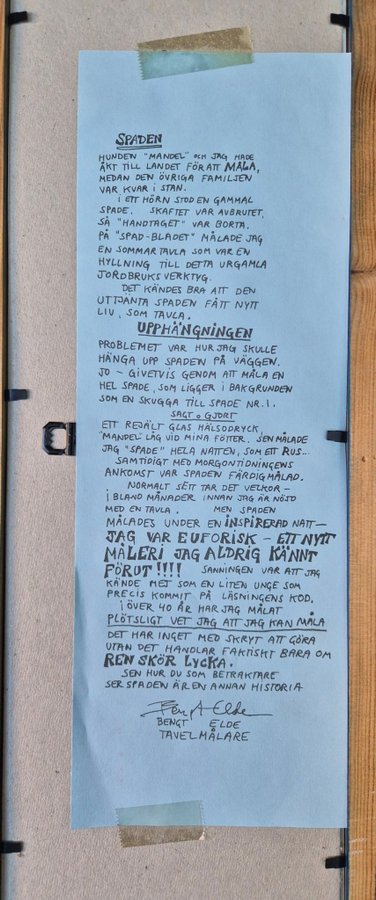 SPADEN
HUNDEN "MANDEL" OCH JAG HADE
ÅKT TILL LANDET FÖR ATT MÅLA,
MEDAN DEN ÖVRIGA FAMILJEN
VAR KVAR I STAN.
I ETT HÖRN STOD EN GAMMAL
SPADE. SKAFTET VAR AVBRUTET,
SÅ "HANDTAGET" VAR BORTA.
PÅ "SPAD-BLADET" MÅLADE JAG
EN SOMMARTAVLA SOM VAR EN
HYLLNING TILL DETTA URGAMLA
JORDBRUKSVERKTYG.
DET KÄNDES BRA ATT DEN
UTTJÄNTA SPADEN FÅTT NYTT
LIV, SOM TAVLA.
UPPHÄNGNINGEN
PROBLEMET VAR HUR JAG SKULLE
HÄNGA UPP SPADEN PÅ VÄGGEN.
JO - GIVETVIS GENOM ATT MÅLA EN
HEL SPADE, SOM LIGGER I BAKGRUNDEN
SOM EN SKUGGA TILL SPADE NR. 1.
SAGT o GJORT
ETT REJÄLT GLAS HÄLSODRYCK,
"MANDEL" LÅG VID MINA FÖTTER. SEN MÅLADE
JAG "SPADE" HELA NATTEN, SOM ETT RUS...
SAMTIDIGT MED MORGONTIDNINGENS
ANKOMST VAR SPADEN FÄRDIGMÅLAD.
NORMALT SETT TAR DET VECKOR -
IBLAND MÅNADER INNAN JAG ÄR NÖJD
MED EN TAVLA. MEN SPADEN
MÅLADES UNDER EN INSPIRERAD NATT-
JAG VAR EUFORISK - ETT NYTT
MÅLERI JAG ALDRIG KÄNNT
FÖRUT!!!! SANNINGEN VAR ATT JAG
KÄNDE MEJ SOM EN LITEN UNGE SOM
PRECIS KOMMIT PÅ LÄSNINGENS KOD.
I ÖVER 40 ÅR HAR JAG MÅLAT
PLÖTSLIGT VET JAG ATT JAG KAN MÅLA
DET HAR INGET MED SKRYT ATT GÖRA
UTAN DET HANDLAR FAKTISKT BARA OM
REN SKÖR LYCKA.
SEN HUR DU SOM BETRAKTARE
SER SPADEN ÄR EN ANNAN HISTORIA
Bengt Elde
BENGT ELDE
TAVELMÅLARE